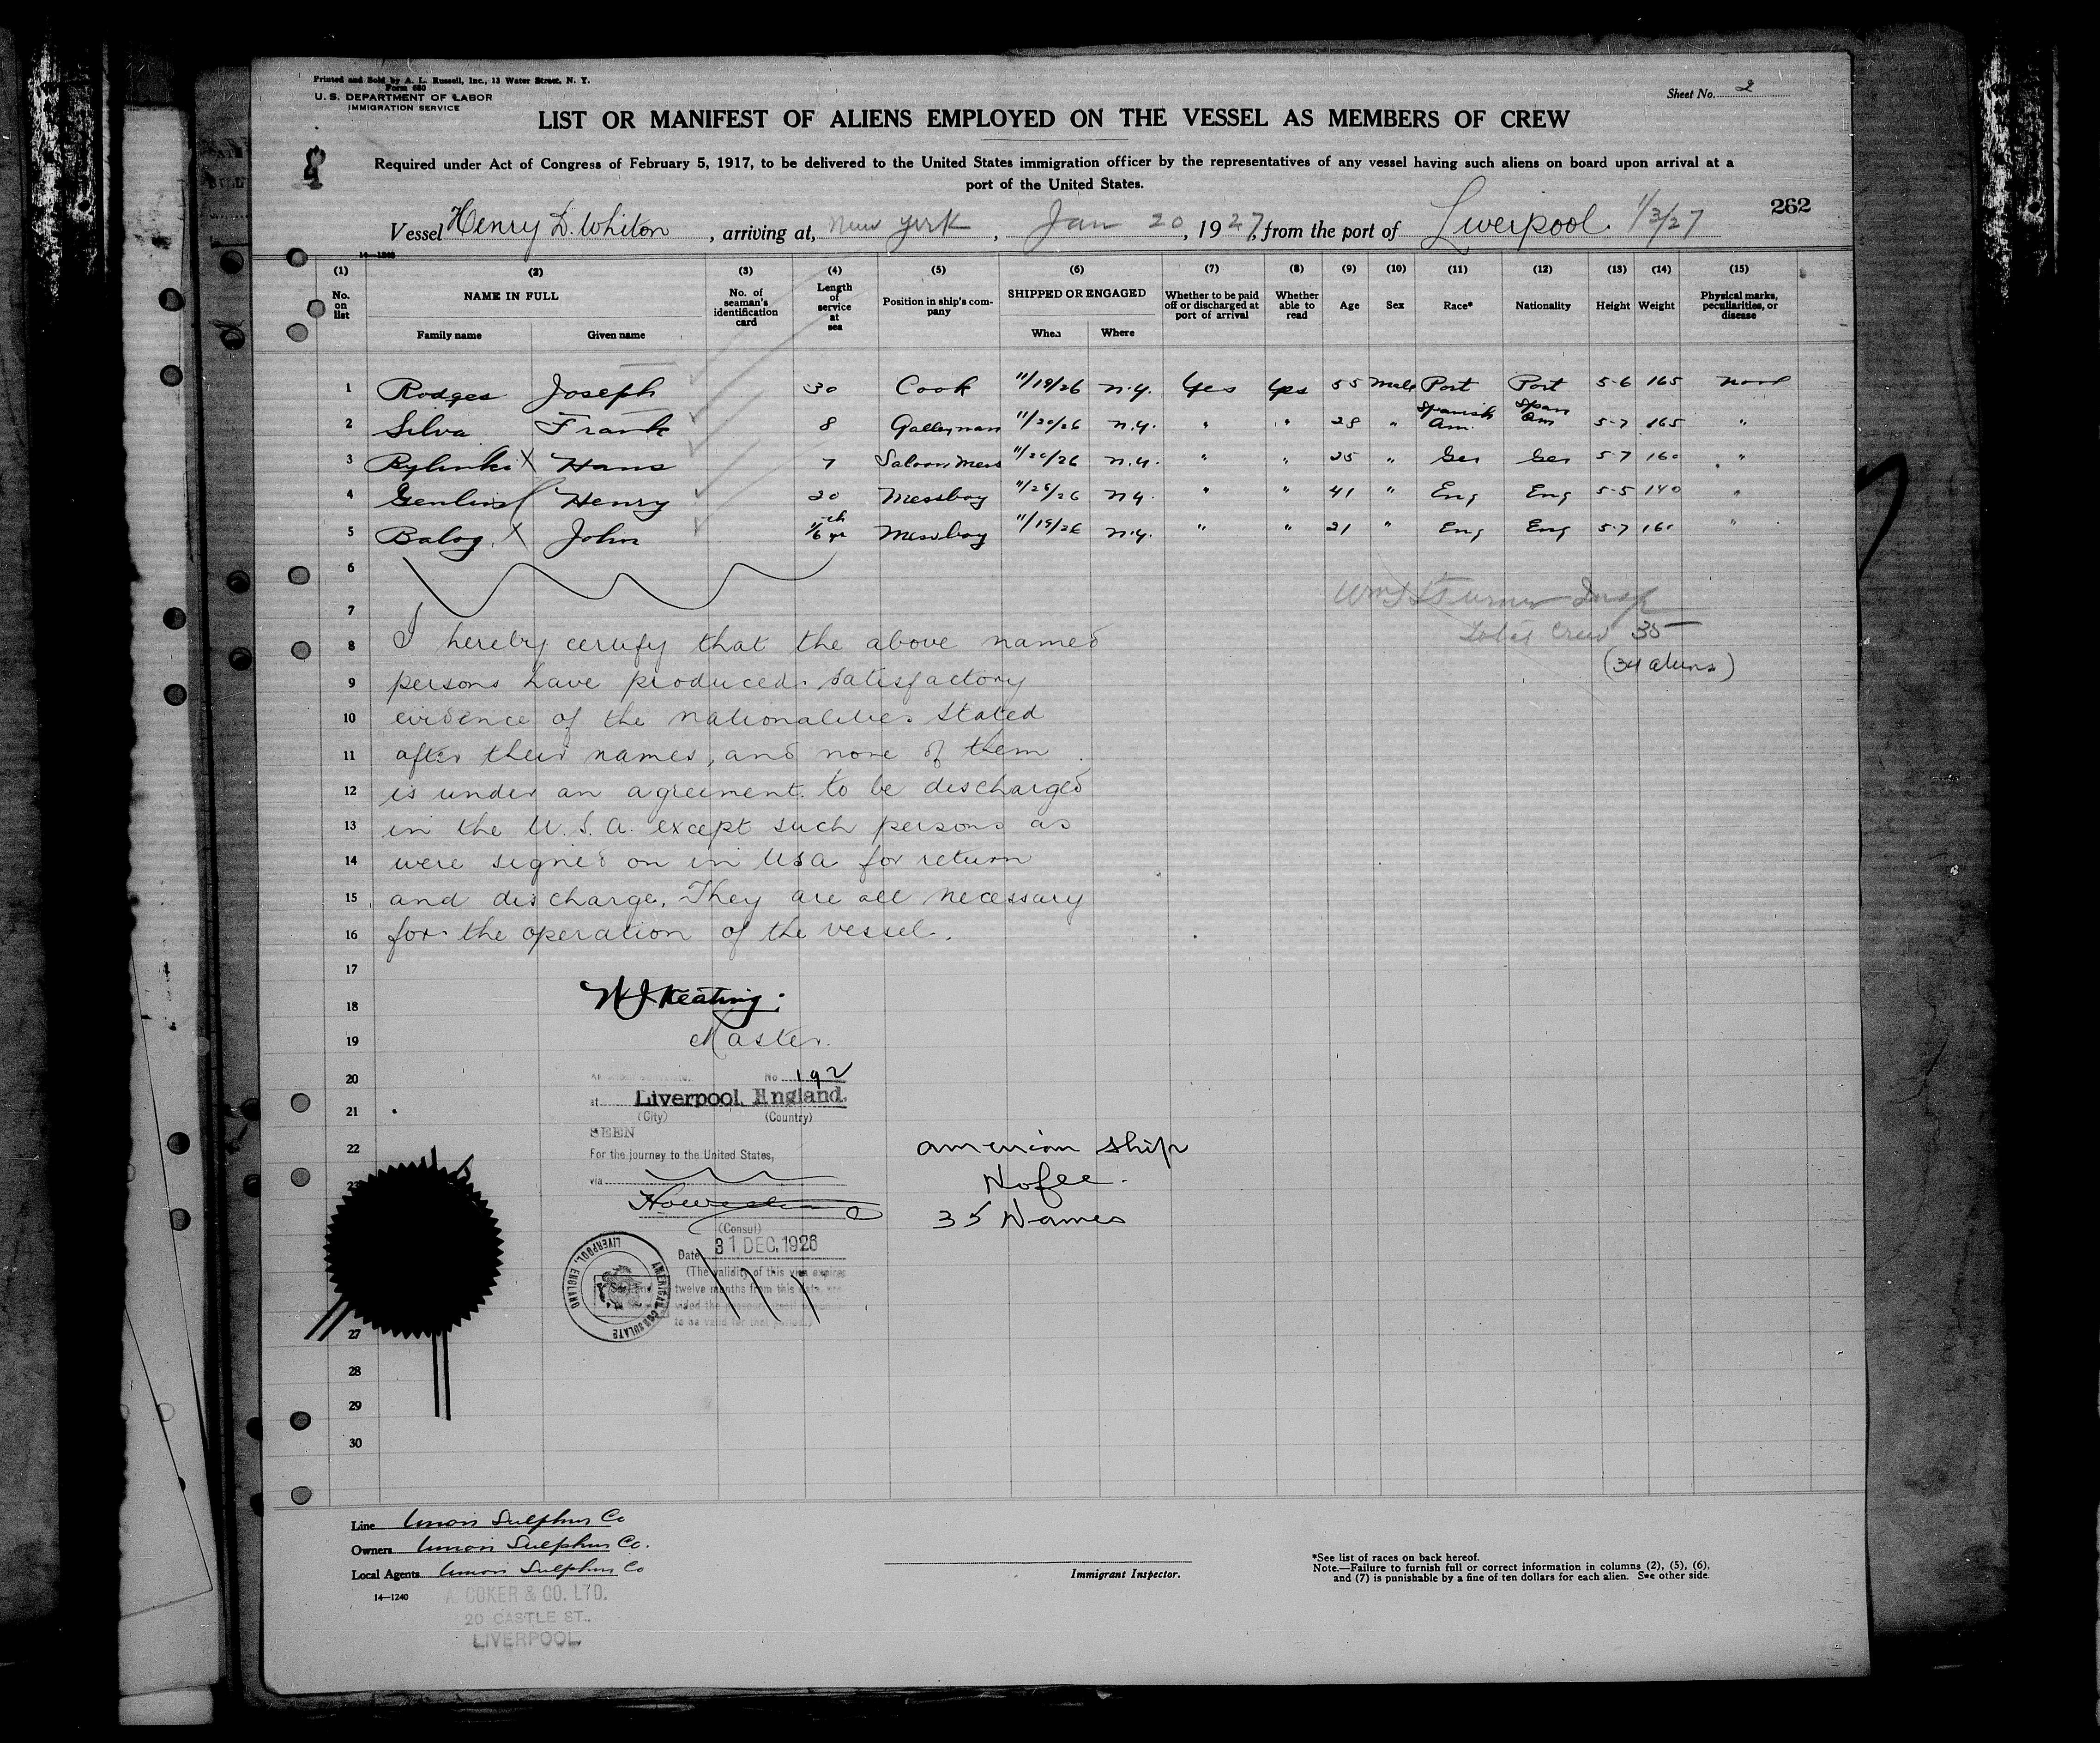 Printed and Sold by A. L. Russell, Inc., 13 Water Street, N. Y.
Form 680
U. S. DEPARTMENT OF LABOR
IMMIGRATION SERVICE
Sheet No. 2
LIST OR MANIFEST OF ALIENS EMPLOYED ON THE VESSEL AS MEMBERS OF CREW
Required under Act of Congress of February 5, 1917, to be delivered to the United States immigration officer by the representatives of any vessel having such aliens on board upon arrival at a
port of the United States.
262
Vessel Henry D. Whiton, arriving at, New York, Jan 20, 1927, from the port of Liverpool. 1/3/27
14—1240
(1) (2) (3) (4) (5) (6) (7) (8) (9) (10) (11) (12) (13) (14) (15)
No. on list NAME IN FULL No. of seaman's identification card Length of service at sea Position in ship's company SHIPPED OR ENGAGED Whether to be paid off or discharged at port of arrival Whether able to read Age Sex Race* Nationality Height Weight Physical marks, peculiarities, or disease
Family name Given name When Where
1 Rodges Joseph 30 Cook 11/19/26 n.y. Yes Yes 55 Male Port Port 5-6 165 none
2 Silva Frank 8 Galleyman 11/20/26 n.y. " " 28 " Spanish Am. Span Am 5-7 165 "
3 Rylinki X Hans 7 Saloon Mess 11/20/26 n.y. " " 25 " Ger Ger 5-7 160 "
4 Henry 20 Messboy 11/26 n.y. " " 41 " Eng Eng 5-5 140 "
5 Balog X John 1/6 yr Messboy 11/19/26 n.y. " " 21 " Eng Eng 5-7 160 "
6
7
Insp
Total Crew 35
(34 aliens)
8 I hereby certify that the above named
9 persons have produced satisfactory
10 evidence of the nationalities stated
11 after their names, and none of them
12 is under an agreement to be discharged
13 in the U.S.A. except such persons as
14 were signed on in USA for return
15 and discharge. They are all necessary
16 for the operation of the vessel.
17
18 W J Keating.
19 Master.
20 No 192
21 at Liverpool, England.
(City) (Country)
22 SEEN
For the journey to the United States,
23 via
(Consul)
Date 31 DEC. 1926
(The validity of this visa expires
twelve months from this date, pro-
vided the passport itself continues
to be valid for that period.)
AMERICAN CONSULATE
LIVERPOOL, ENGLAND
american ship
No fee.
35 Names
27
28
29
30
Line Union Sulphur Co
Owners Union Sulphur Co.
Local Agents Union Sulphur Co
14—1240
A. COKER & CO. LTD.
20 CASTLE ST.,
LIVERPOOL.
Immigrant Inspector.
*See list of races on back hereof.
Note.—Failure to furnish full or correct information in columns (2), (5), (6),
and (7) is punishable by a fine of ten dollars for each alien. See other side.